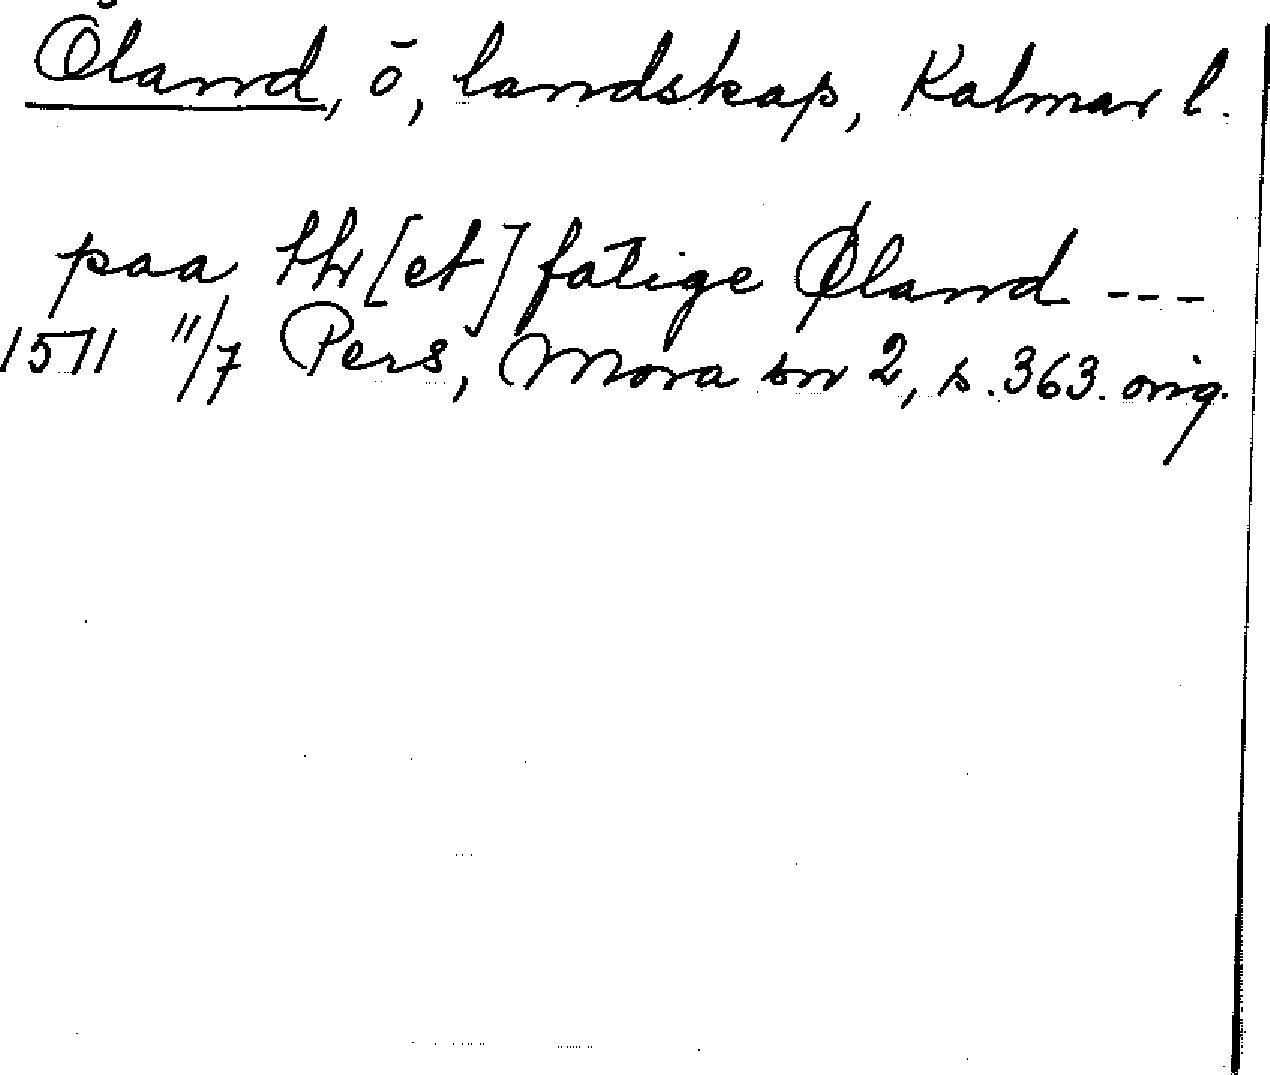 Öland, ö, landskap, Kalmar l.
paa th[et] fatige Øland ---
1511 11/7 Pers, Mora sn 2, s. 363. orig.